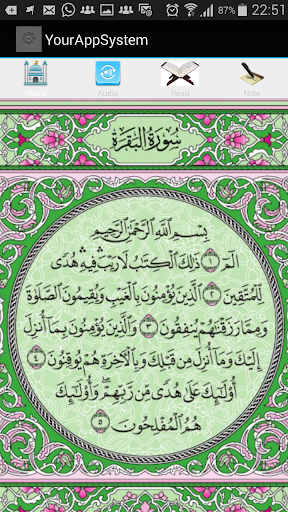 87% 22:51
YourAppSystem
Home Audio Read Note
سُورَةُ البَقَرَةِ
بِسْمِ اللَّهِ الرَّحْمَٰنِ الرَّحِيمِ
الٓمٓ ١ ذَٰلِكَ الْكِتَٰبُ لَا رَيْبَ ۛ فِيهِ ۛ هُدًى
لِّلْمُتَّقِينَ ٢ الَّذِينَ يُؤْمِنُونَ بِالْغَيْبِ وَيُقِيمُونَ الصَّلَوٰةَ
وَمِمَّا رَزَقْنَٰهُمْ يُنفِقُونَ ٣ وَالَّذِينَ يُؤْمِنُونَ بِمَا أُنزِلَ
إِلَيْكَ وَمَا أُنزِلَ مِن قَبْلِكَ وَبِالْآخِرَةِ هُمْ يُوقِنُونَ ٤
أُولَٰئِكَ عَلَىٰ هُدًى مِّن رَّبِّهِمْ ۖ وَأُولَٰئِكَ
هُمُ الْمُفْلِحُونَ ٥